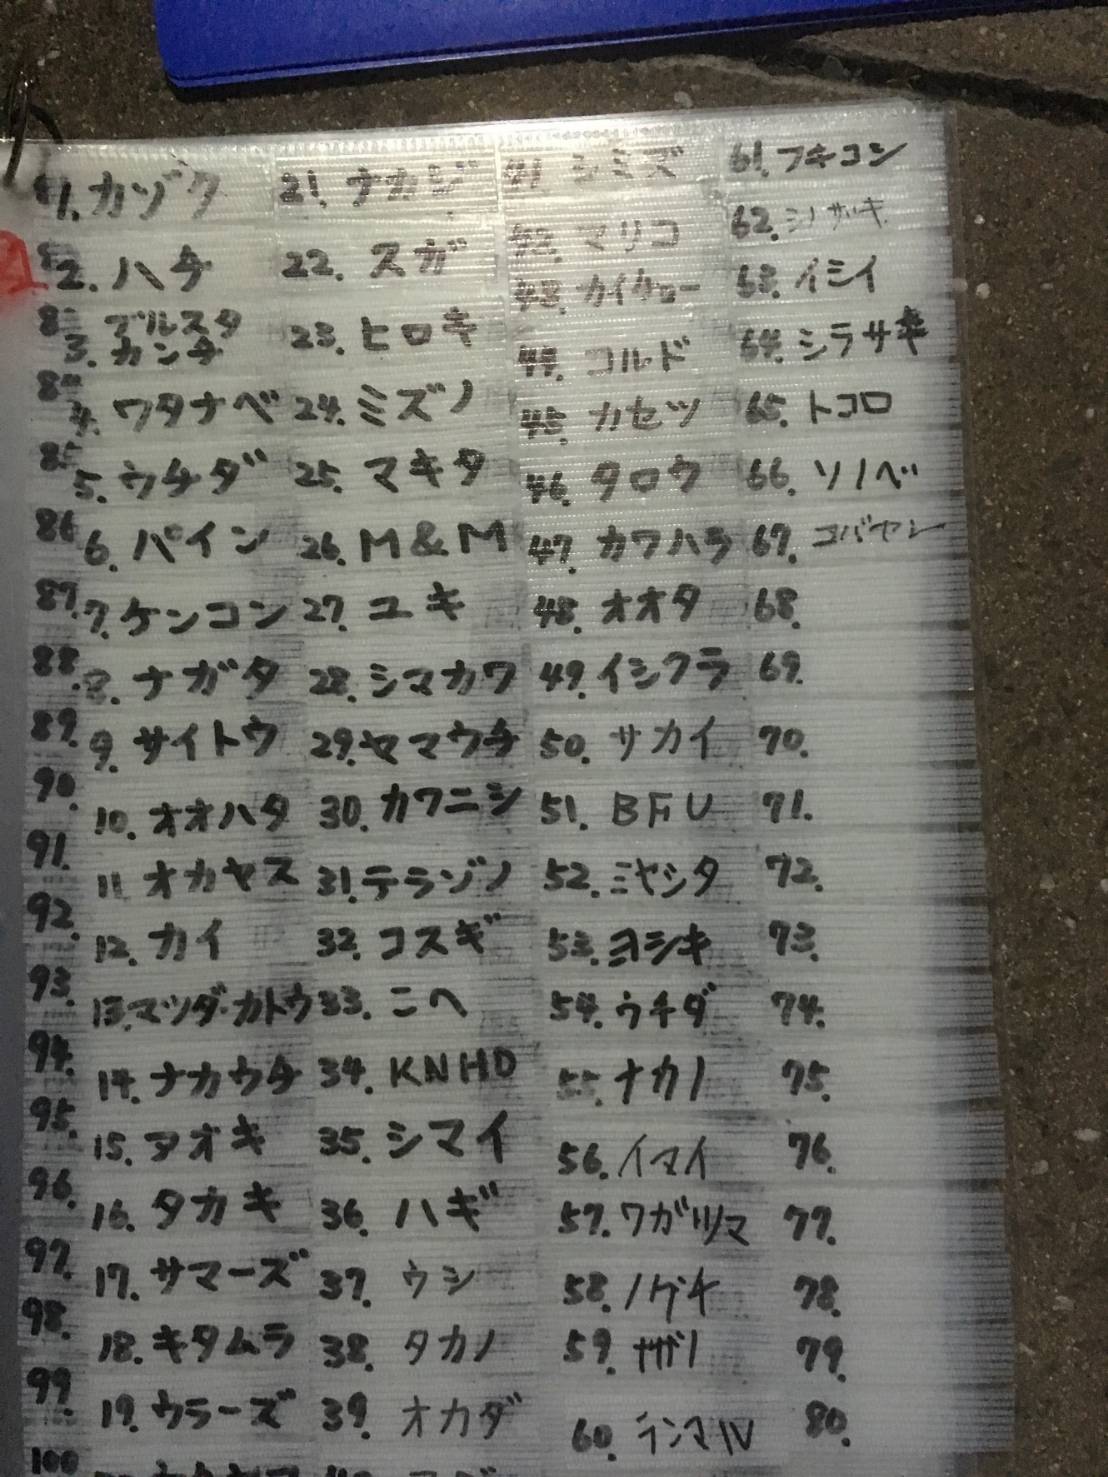 1. カゾク
2. ハチ
3. ブルスタ
カンチ
4. ワタナベ
5. ウチダ
6. パイン
7. ケンコン
8. ナガタ
9. サイトウ
10. オオハタ
11. オカヤス
12. カイ
13. マツダ・カトウ
14. ナカウチ
15. アオキ
16. タカキ
17. サマーズ
18. キタムラ
19. ウラーズ
21. ナカジ
22. スガ
23. ヒロキ
24. ミズノ
25. マキタ
26. M&M
27. ユキ
28. シマカワ
29. ヤマウチ
30. カワニシ
31. テラゾノ
32. コスギ
33. こへ
34. KNHD
35. シマイ
36. ハギ
37. ウシ
38. タカノ
39. オカダ
41 シミズ
42. マリコ
43. カイケロー
44. コルド
45. カセツ
46. タロウ
47. カワハラ
48. オオタ
49. イシクラ
50. サカイ
51. BFU
52. ミヤシタ
53. ヨシキ
54. ウチダ
55. ナカノ
56. イマイ
57. ワガツマ
58. ノグチ
59.
60. テンマル
61. フキコン
62. シノザキ
63. イシイ
64. シラサキ
65. トコロ
66. ソノベ
67. コバヤシ
68.
69.
70.
71.
72.
73.
74.
75.
76.
77.
78.
79.
80.
85.
86
87.
88.
89.
90.
91.
92.
93.
94.
95.
96.
97.
98.
99.
100